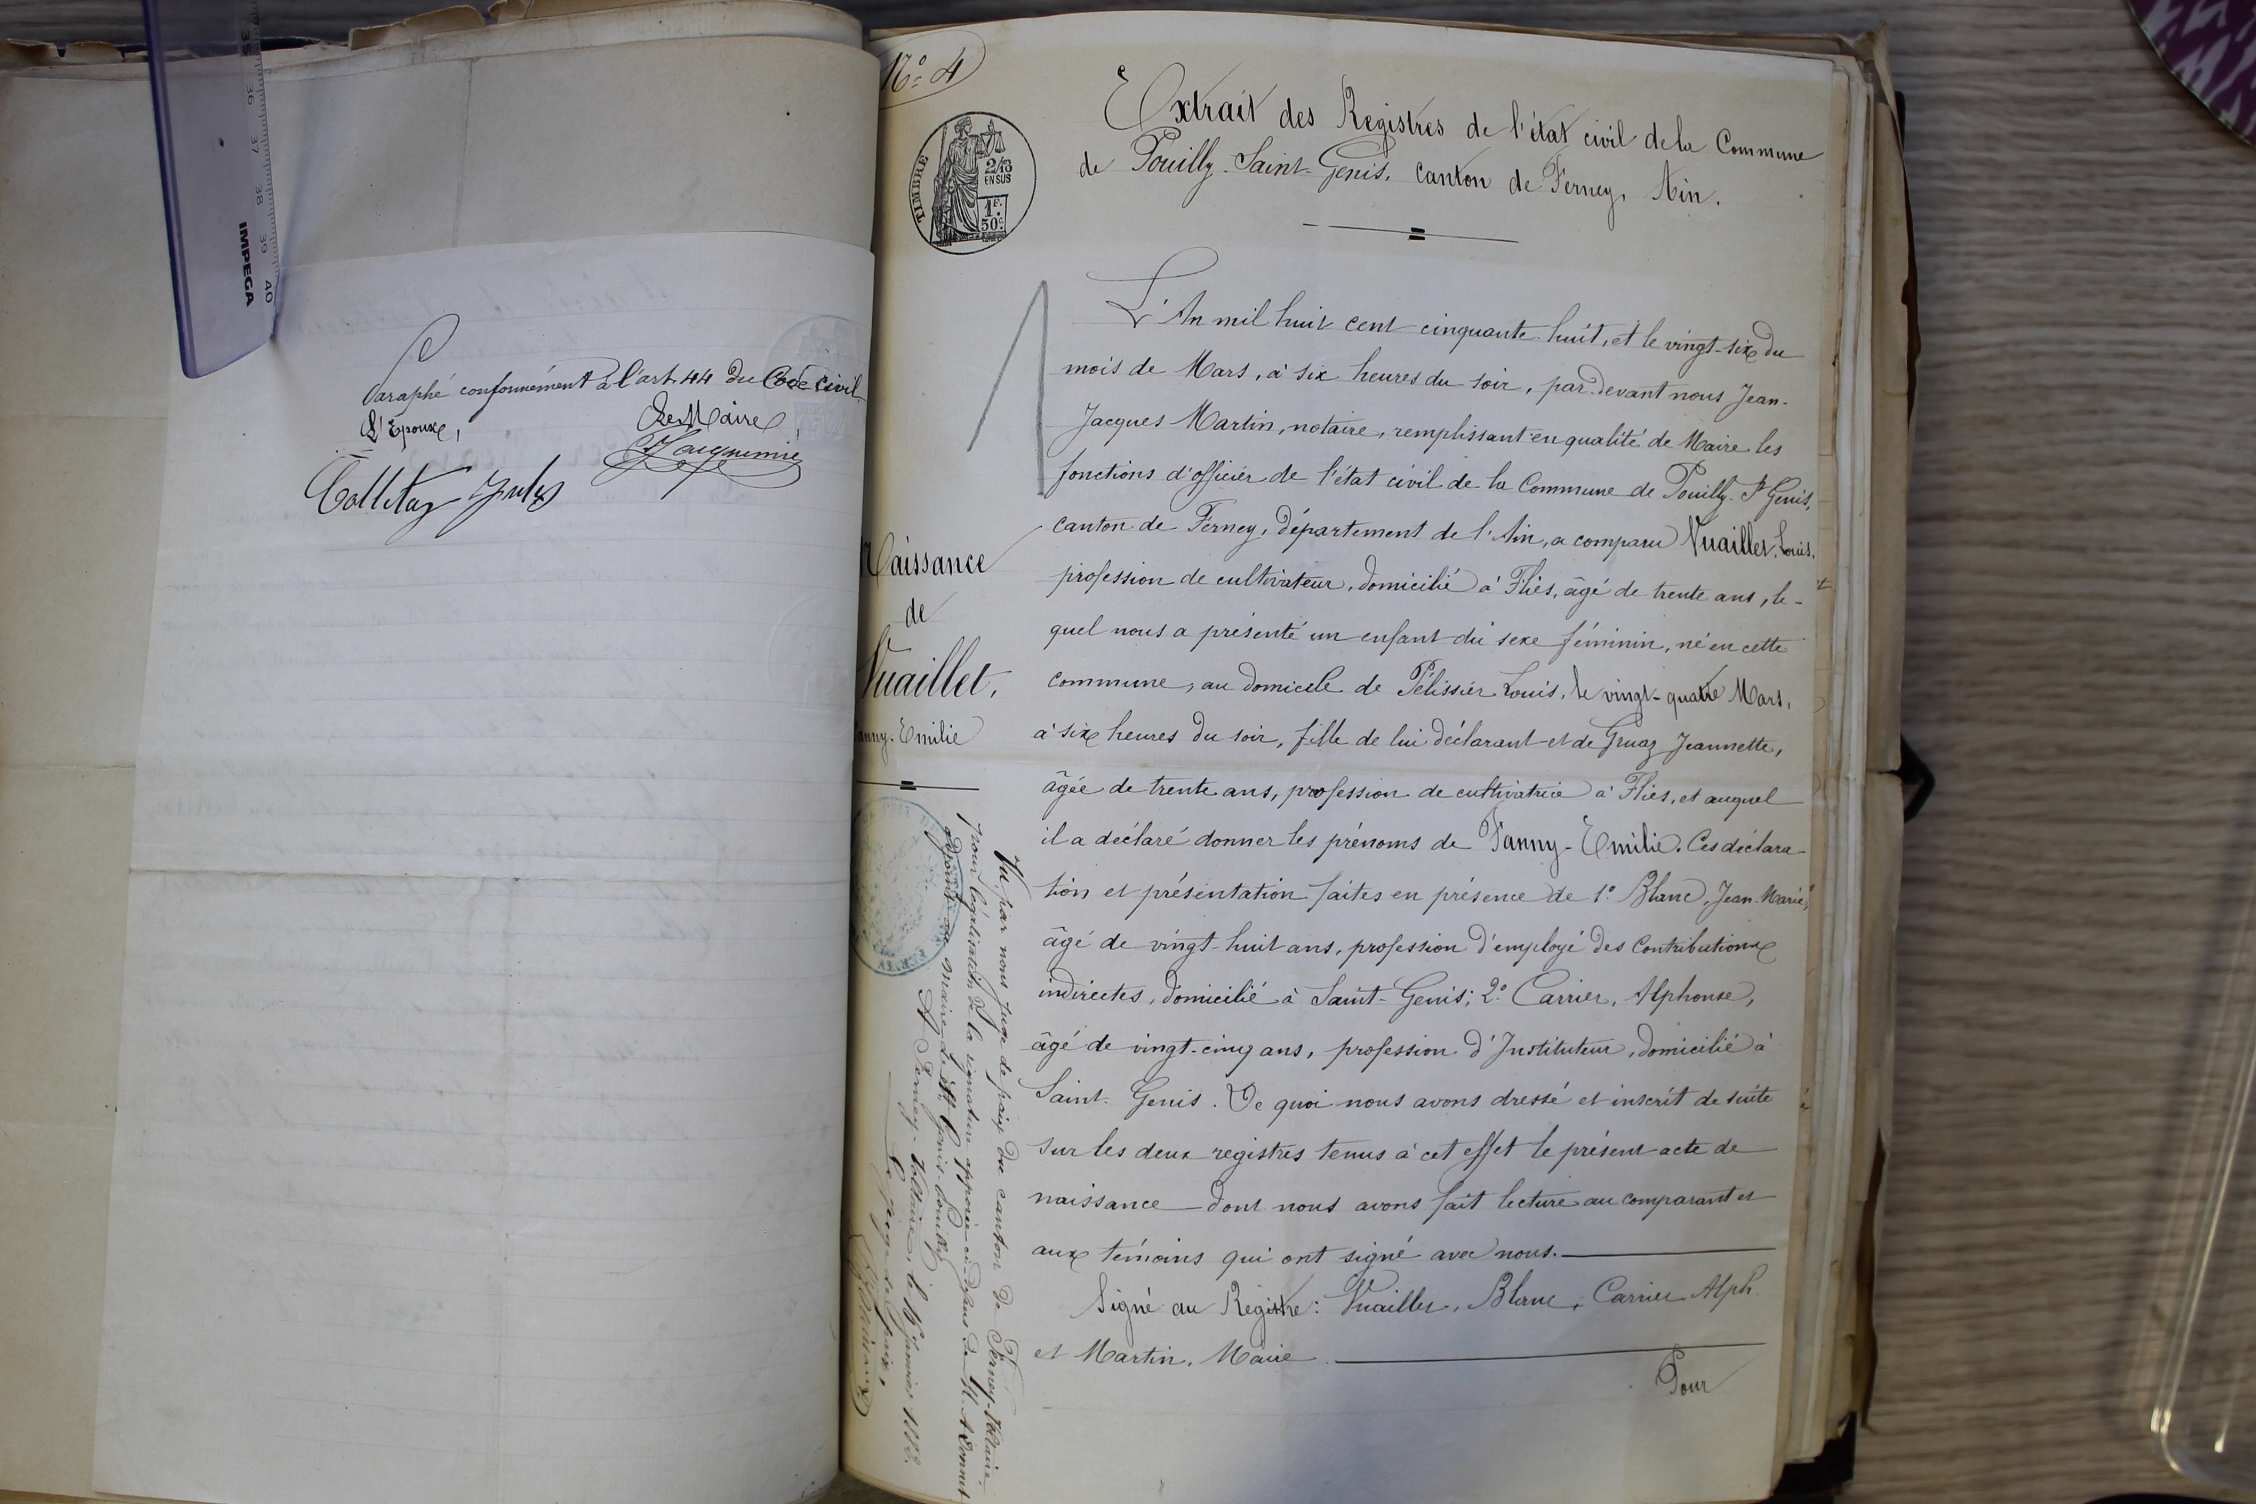 35
36
37
38
39
40
IMPEGA
Paraphé conformément à l'art. 44 du Code civil.
L'Epoux,
Le Maire,
N° 4
TIMBRE
2/10
EN SUS
1F.
50c.
Extrait des Registres de l'état civil de la Commune
de Pouilly-Saint-Genis, Canton de Ferney, Ain.
Naissance
de
Vuaillet,
Fanny-Emilie
L'An mil huit cent cinquante-huit, et le vingt-six du
mois de Mars, à six heures du soir, par devant nous Jean-
Jacques Martin, notaire, remplissant en qualité de Maire les
fonctions d'officier de l'état civil de la Commune de Pouilly-St Genis,
canton de Ferney, département de l'Ain, a comparu Vuaillet, Louis,
profession de cultivateur, domicilié à Flies, âgé de trente ans, le-
quel nous a présenté un enfant du sexe féminin, né en cette
commune, au domicile de Pélissier Louis, le vingt-quatre Mars,
à six heures du soir, fille de lui déclarant et de Gruaz Jeannette,
âgée de trente ans, profession de cultivatrice à Flies, et auquel
il a déclaré donner les prénoms de Fanny-Emilie. Ces déclara-
tion et présentation faites en présence de 1° Blanc, Jean-Marie,
âgé de vingt-huit ans, profession d'employé des Contributions
indirectes, domicilié à Saint-Genis; 2° Carrier, Alphonse,
âgé de vingt-cinq ans, profession d'Instituteur, domicilié à
Saint-Genis. De quoi nous avons dressé et inscrit de suite
sur les deux registres tenus à cet effet le présent acte de
naissance dont nous avons fait lecture au comparant et
aux témoins qui ont signé avec nous.
Signé au Registre: Vuaillet, Blanc, Carrier Alph.
et Martin, Maire
Pour
Vu par nous Juge de paix du canton de Ferney-Voltaire
pour légalisation de la signature apposée ci-dessus de M.
adjoint au maire de St Genis-Pouilly
A Ferney-Voltaire, le Janvier 188
Le Juge de paix,